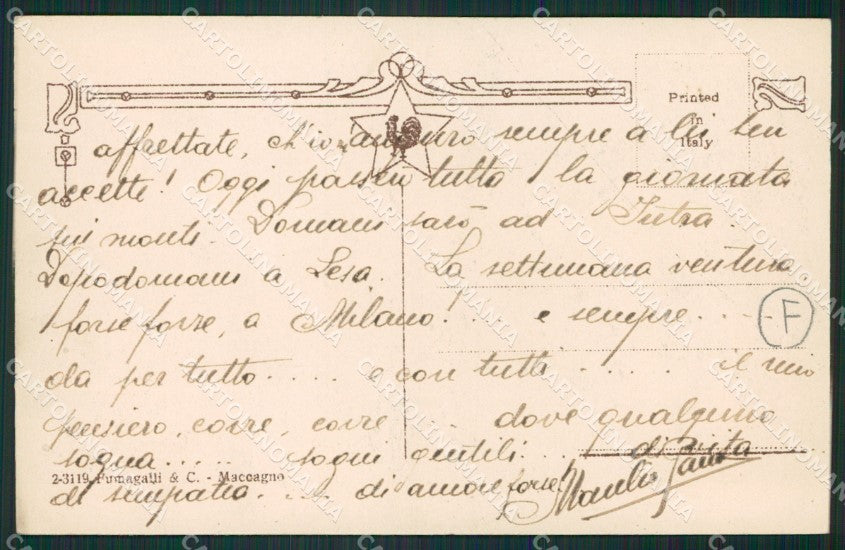 Printed
in
Italy
affrettate, ch'io auguro sempre a lei ben
accette! Oggi passai tutto la giornata
sui monti. Domani sarò ad Intra.
Dopodomani a Lesa. La settimana ventura
forse forse, a Milano! e sempre....
F
da per tutto..... e con tutti...... il mio
pensiero, corre, corre... dove qualcuno
sogna...... sogni gentili....
2-3119 Fumagalli & C. - Maccagno
di simpatia.... di amore forse!
CARTOLINOMANIA